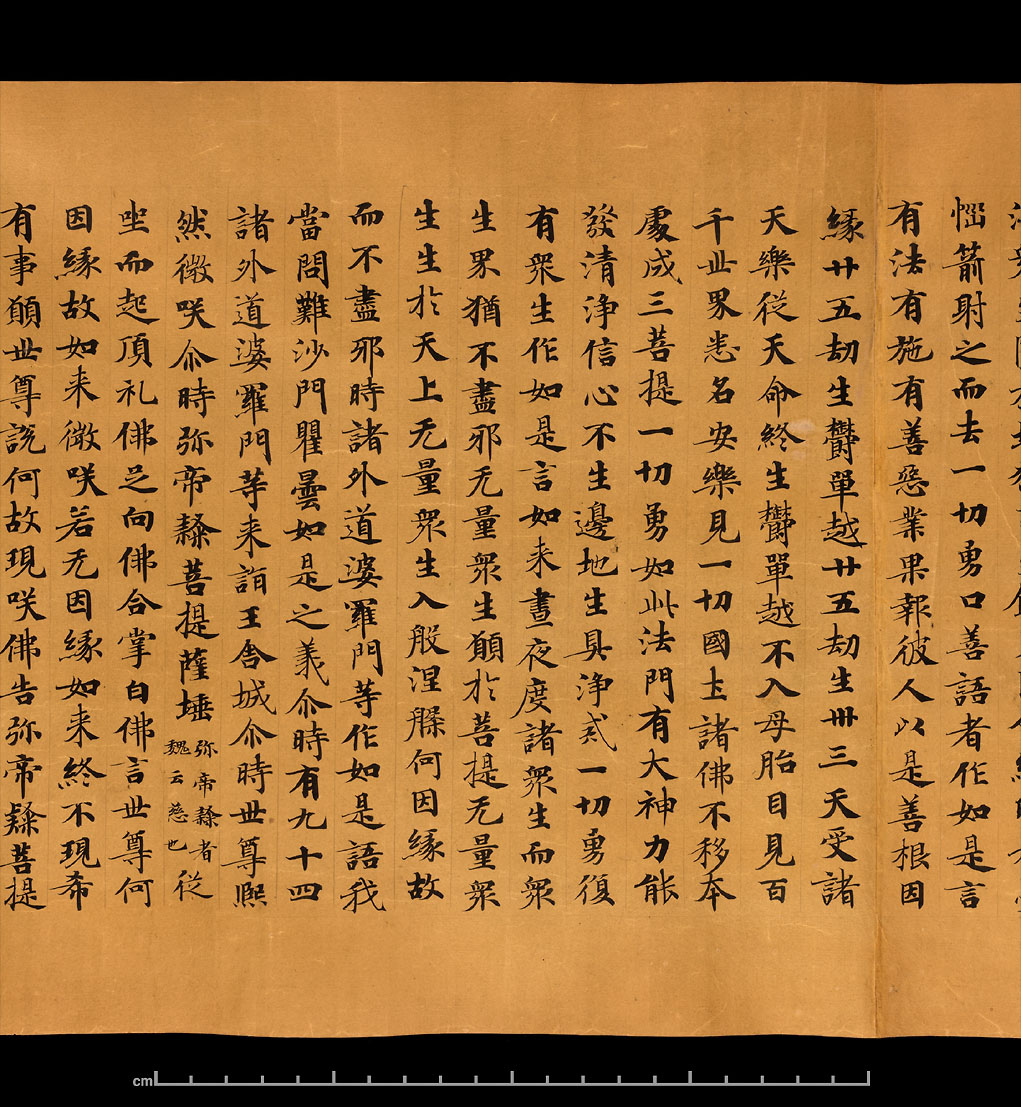 惱箭射之而去一切勇口善語者作如是言
有法有施有善惡業果報彼人以是善根因
緣廿五劫生欝單越廿五劫生卅三天受諸
天樂從天命終生欝單越不入母胎目見百
千世界悉名安樂見一切國圡諸佛不移本
處成三菩提一切勇如此法門有大神力能
發清淨信心不生邊地生具淨戒一切勇復
有衆生作如是言如来晝夜度諸衆生而衆
生界猶不盡邪无量衆生願於菩提无量衆
生生於天上无量衆生入般涅槃何因緣故
而不盡邪時諸外道婆羅門等作如是語我
當問難沙門瞿曇如是之義尒時有九十四
諸外道婆羅門等来詣王舍城尒時世尊熈
然微咲尒時弥帝隸菩提薩埵弥帝隸者魏云慈也従
坐而起頂礼佛足向佛合掌白佛言世尊何
因緣故如来微咲若无因緣如来終不現希
有事願世尊說何故現咲佛告弥帝隸菩提